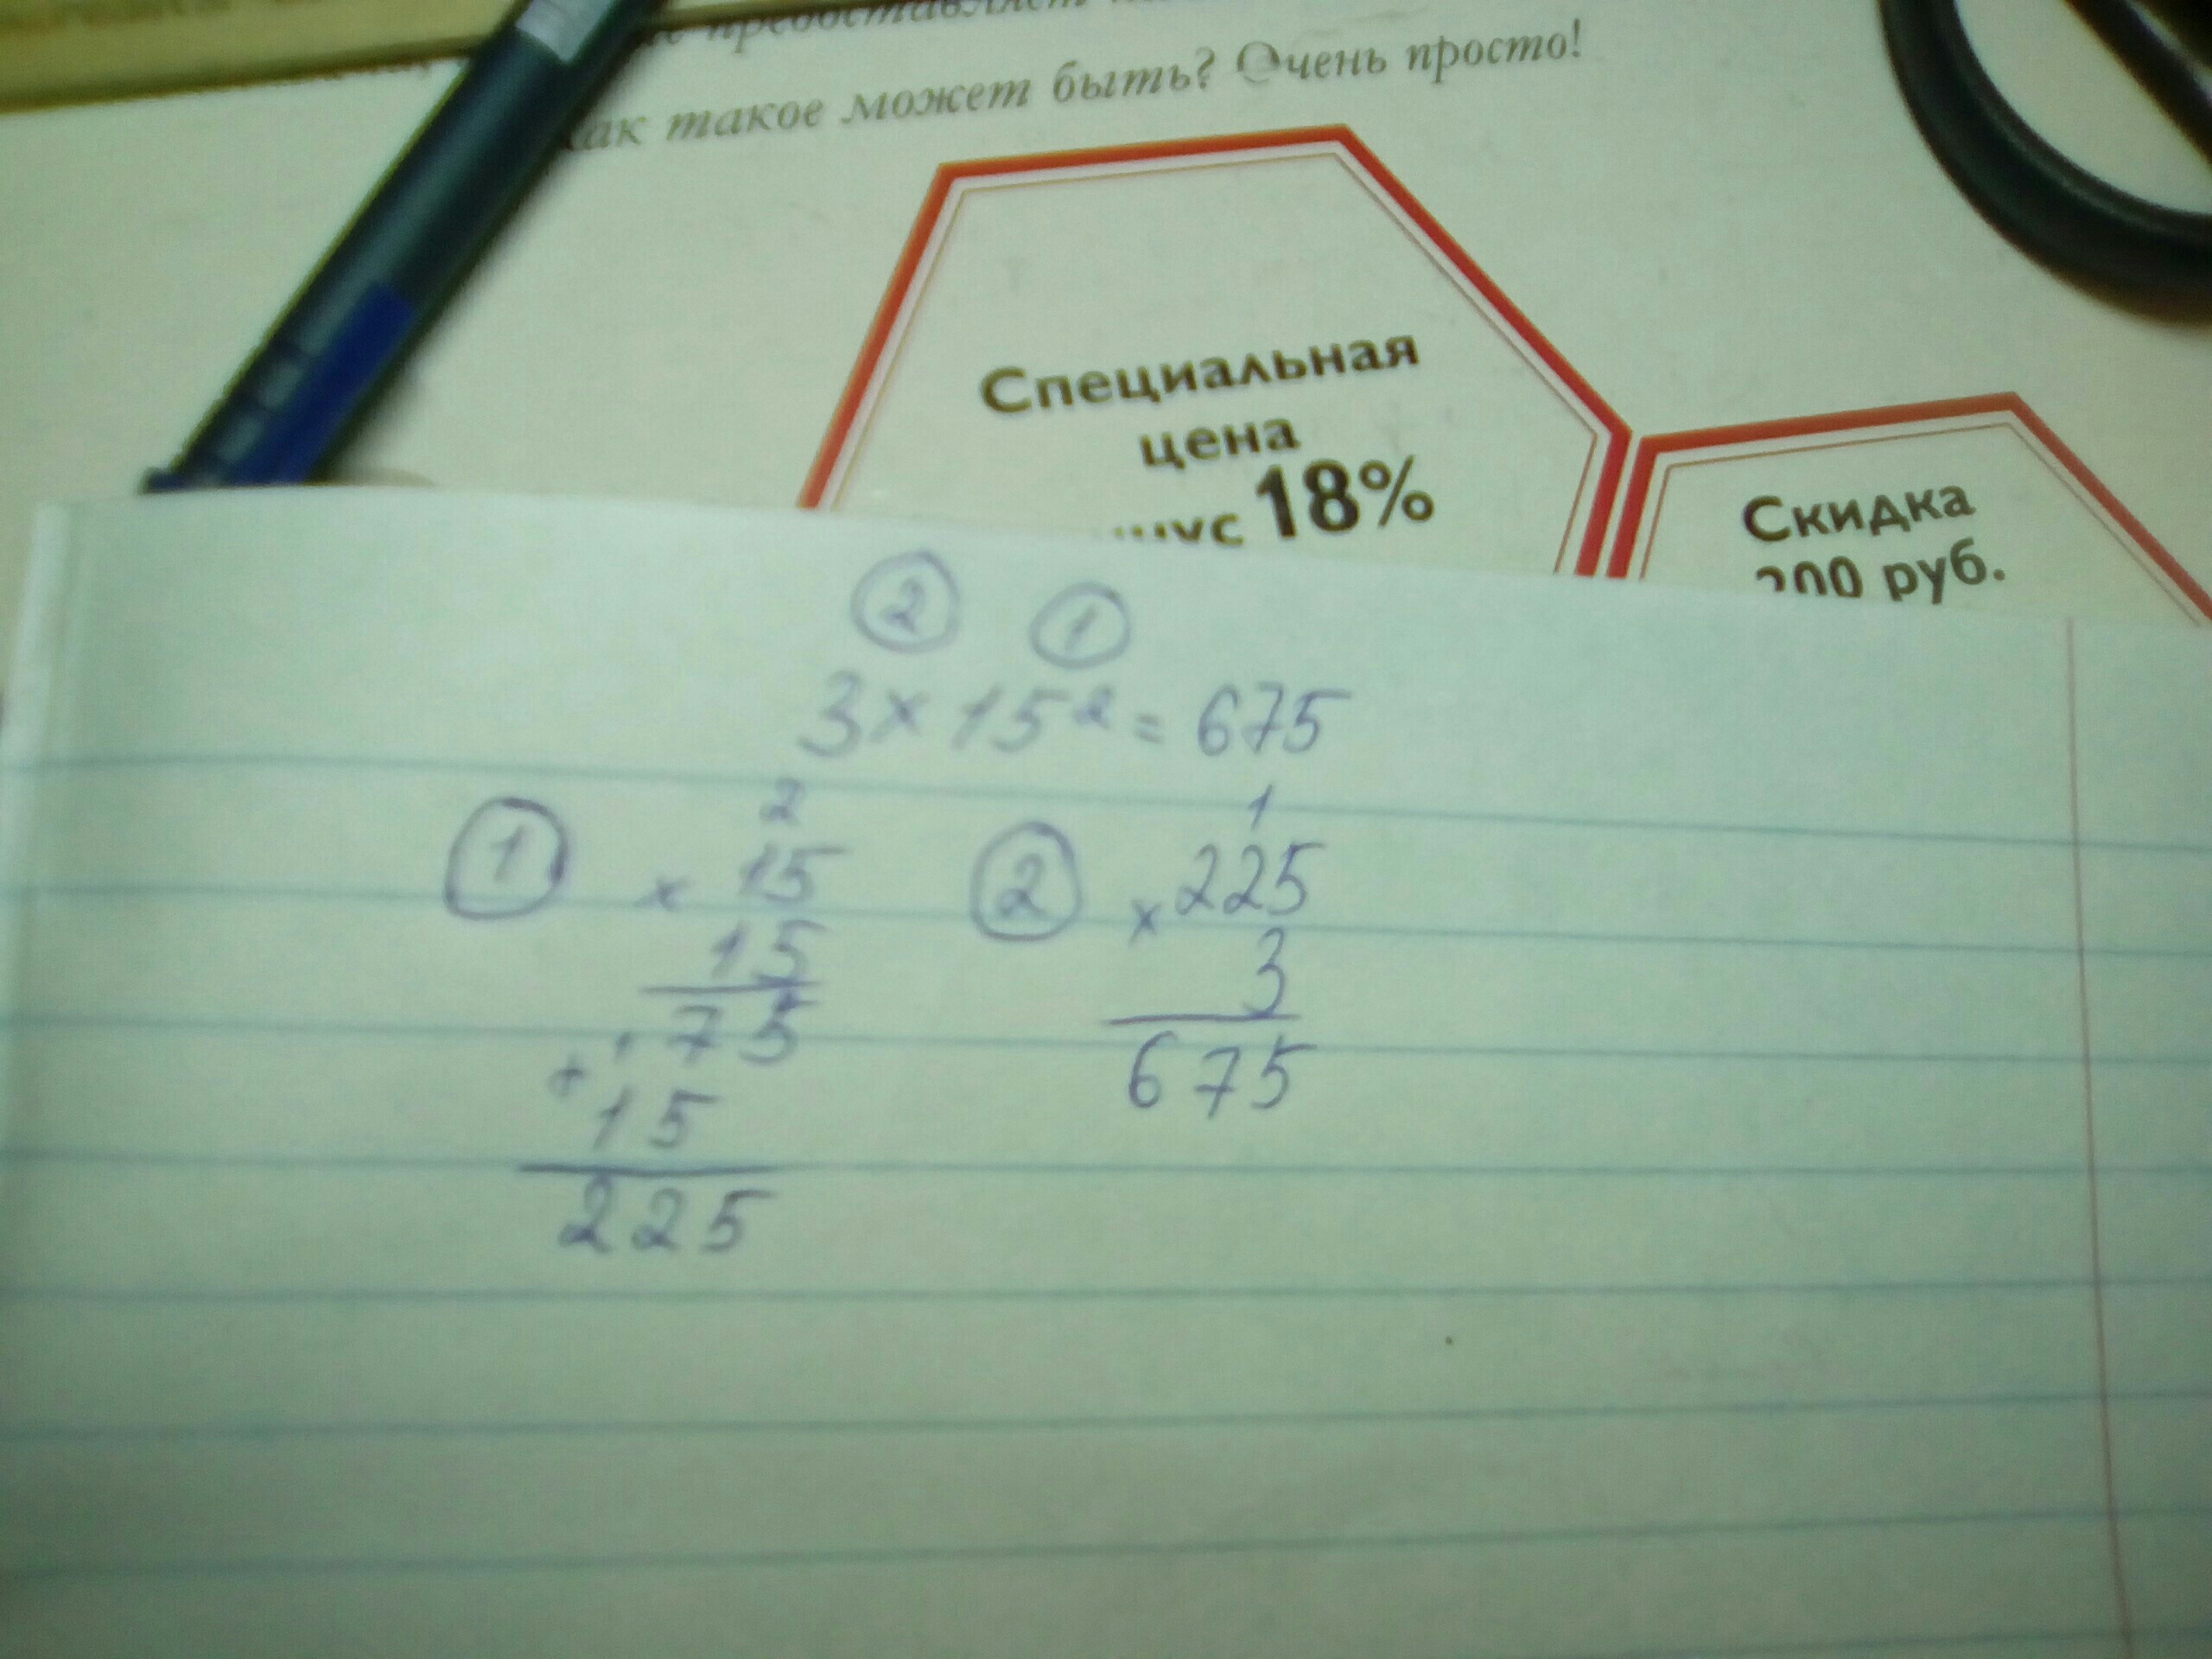 предоставляет
как такое может быть? Очень просто!
Специальная
цена
минус 18%
Скидка
200 руб.
② ①
3 × 15² = 675
① 2
× 15
15
1 75
+ 15
225
② 1
× 225
3
675